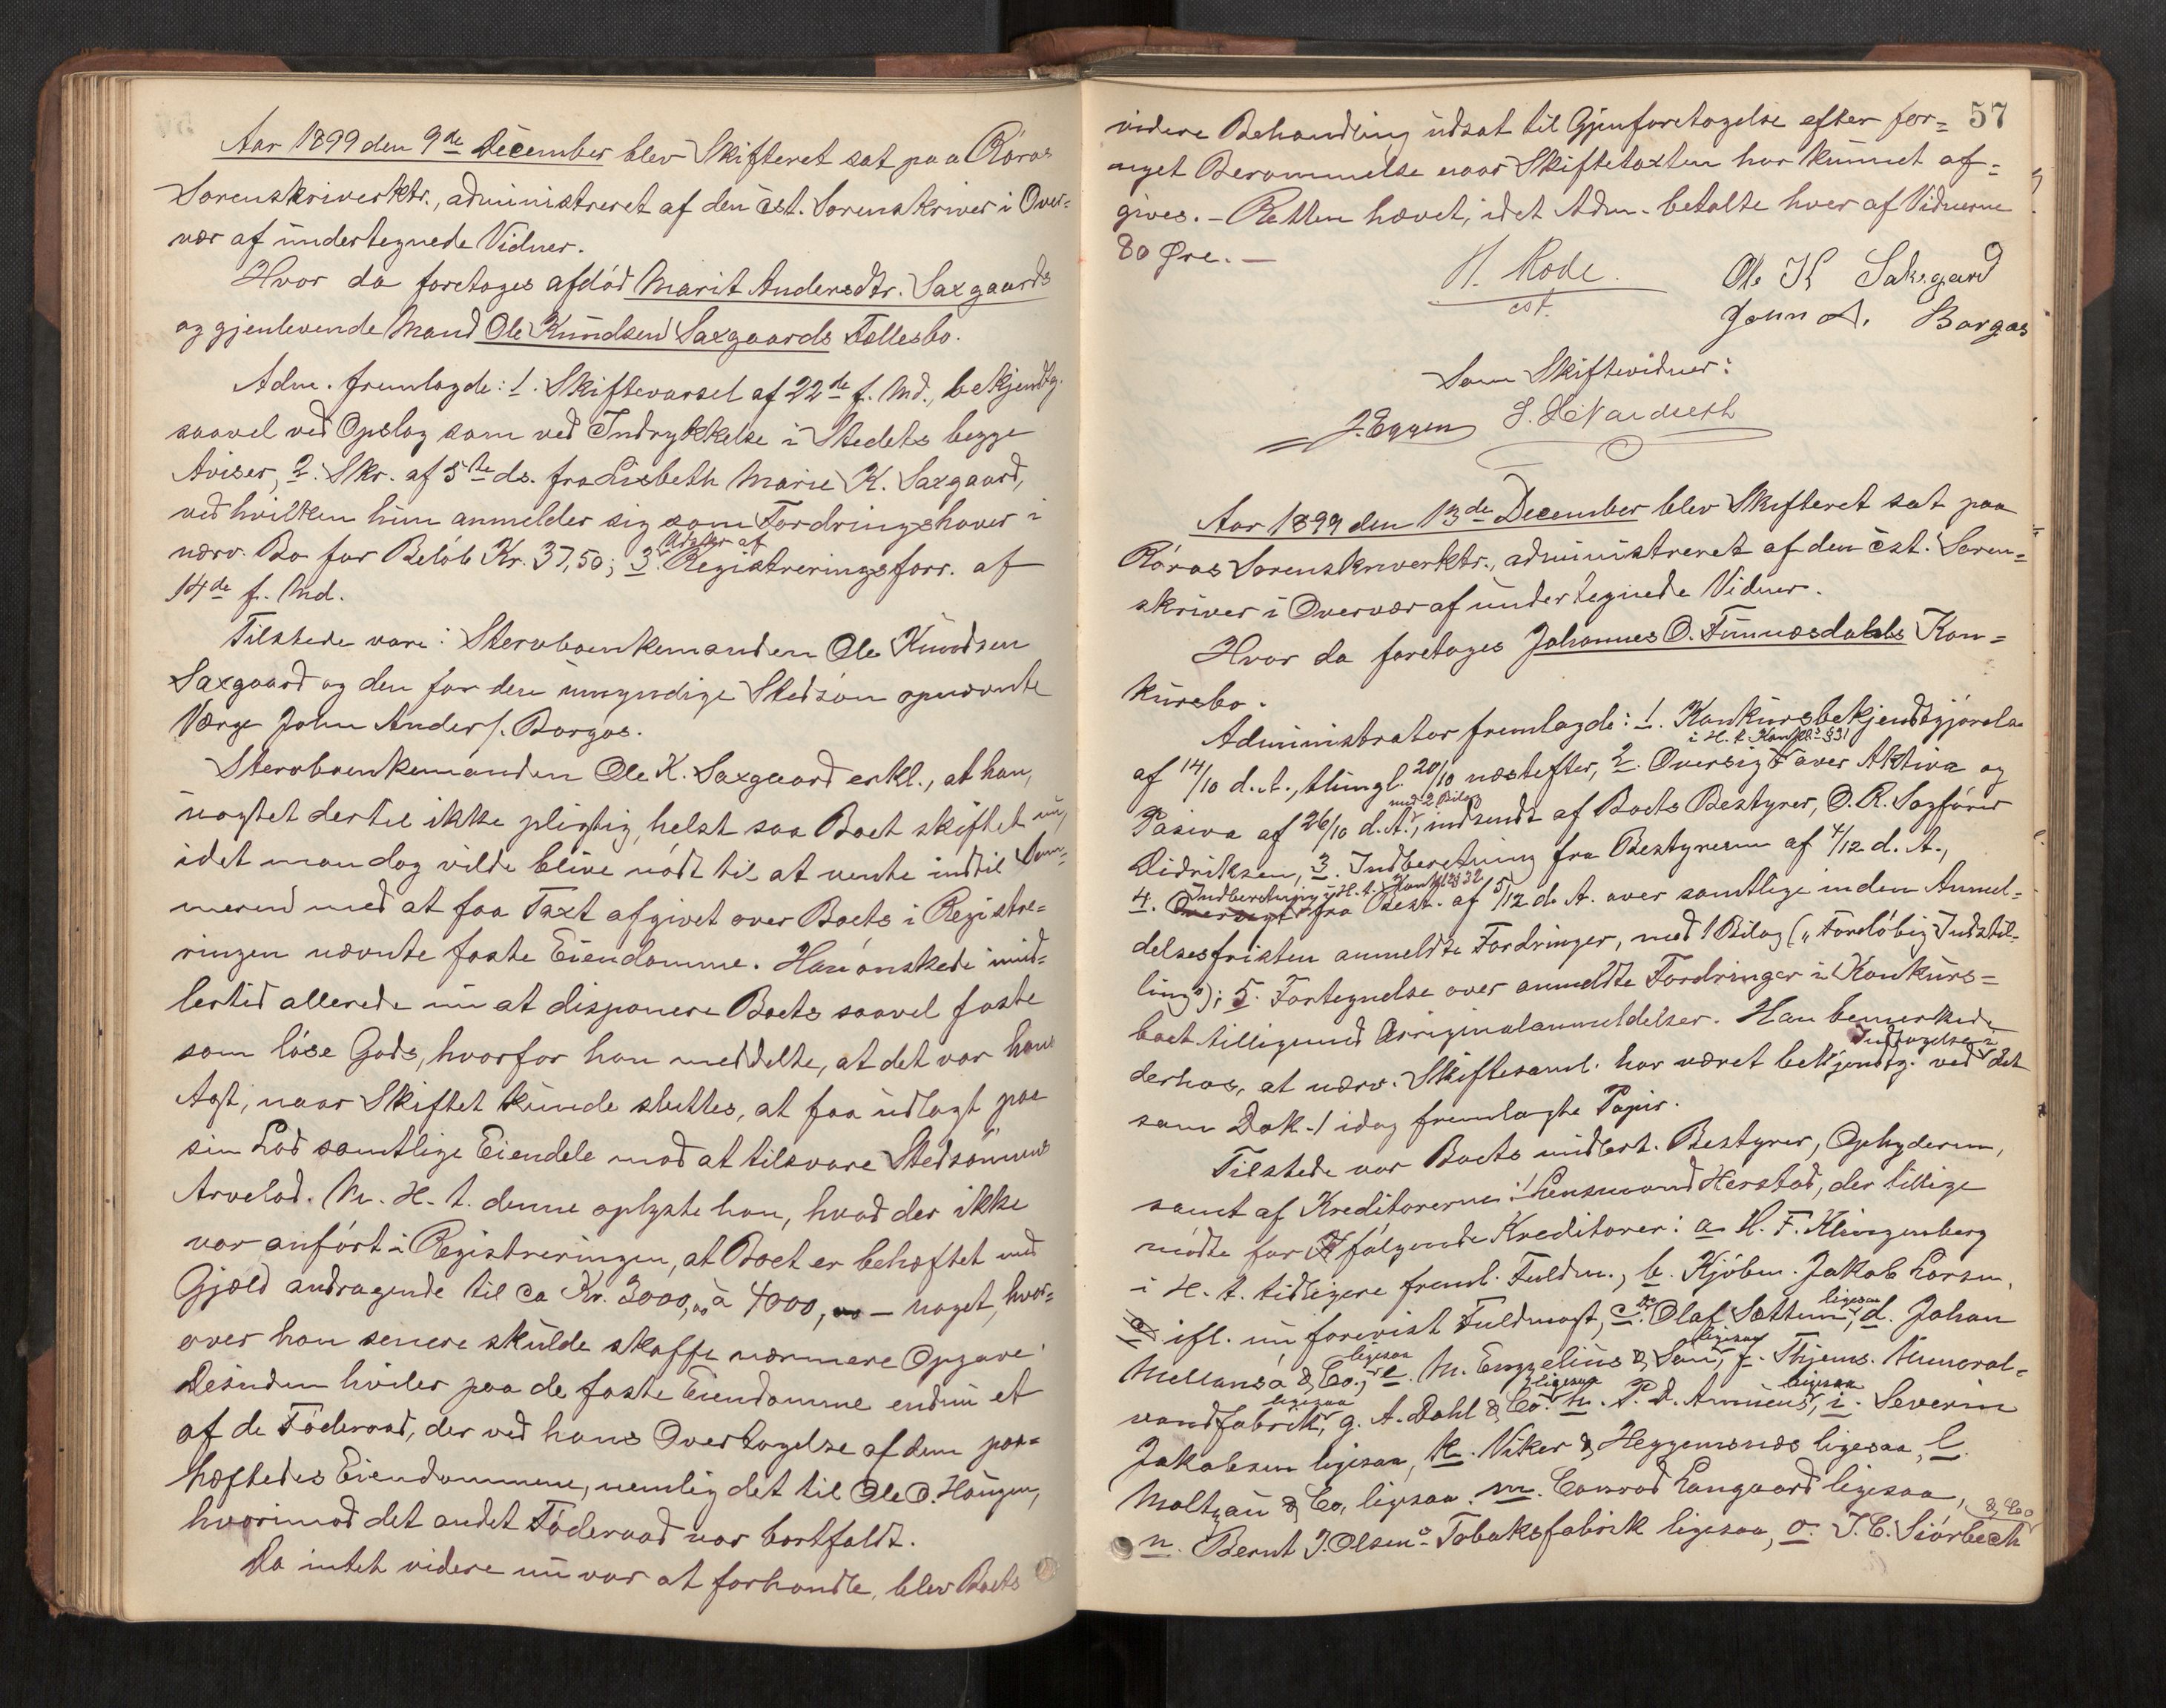 Aar 1899 den 9de December blev Skifteret sat paa Røros
Sorenskriverktr., administreret af den cst. Sorenskriver i Over-
vær af undertegnede Vidner.
Hvor da foretoges afdød Marit Andersdtr. Saxgaards
og gjenlevende Mand Ole Knudsen Saxgaards Fællesbo.
Adm. fremlagde: 1. Skiftevarsel af 22de f. Md., bekjendtg.
saavel ved Opslag som ved Indrykkelse i Stedets begge
Aviser, 2. Skr. af 5te ds. fra Lisbeth Marie K. Saxgaard,
ved hvilken hun anmelder sig som Fordringshaver i
nærv. Bo for Beløb Kr. 37,50; 3. Udskr. af Registreringsforr. af
14de f. Md.
Tilstede vare: Stervboenkemanden Ole Knudsen
Saxgaard og den for den umyndige Stedsøn opnævnte
Værge John Anders. Borgos.
Stervboenkemanden Ole K. Saxgaard erkl., at han,
uagtet dertil ikke pligtig, helst saa Boet skiftet nu,
idet man dog vilde blive nødt til at vente indtil Som-
meren med at faa Taxt afgivet over Boets i Registre-
ringen nævnte faste Eiendomme. Han ønskede imid-
lertid allerede nu at disponere Boets saavel faste
som løse Gods, hvorfor han meddelte, at det var hans
Agt, naar Skiftet kunde sluttes, at faa udlagt paa
sin Lod samtlige Eiendele mod at tilsvare Stedsønnens
Arvelod. M. H. t. denne oplyste han, hvad der ikke
var anført i Registreringen, at Boet er behæftet med
Gjæld andragende til ca Kr. 3000,00 à 4000,00 – noget, hvor-
over han senere skulde skaffe nærmere Opgave.
Desuden hviler paa de faste Eiendomme endnu et
af de Føderaad, der ved hans Overtagelse af dem paa-
hæftedes Eiendommene, nemlig det til Ole O. Haugen,
hvorimod det andet Føderaad var bortfaldt.
Da intet videre nu var at forhandle, blev Boets
57
videre Behandling udsat til Gjenforetagelse efter for-
nyet Berammelse naar Skiftetaxten har kunnet af-
gives. – Retten hævet, idet Adm. betalte hver af Vidnerne
80 Øre. –
H. Rode Ole K Saksgard
cst. John A. Borgos
Som Skiftevidner:
J. Eggen
Aar 1899 den 13de December blev Skifteret sat paa
Røros Sorenskriverktr., administreret af den cst. Soren-
skriver i Overvær af undertegnede Vidner.
Hvor da foretoges Johannes O. Finnæsdahls Kon-
kursbo.
Administrator fremlagde: 1. Konkursbekjendtgjørelse
af 14/10 d. A., thingl. 20/10 næstefter, 2. Oversigt i H. t. Konkl.s § 31 over Aktiva og
Pasiva af 26/10 d. A. med 2 Bilag, indsendt af Boets Bestyrer, O. R. Sagfører
Didriksen, 3. Indberetning fra Bestyreren af 4/12 d. A.,
4. Indberetning i H. t. Konkl. § 32 fra Best. af 5/12 d. A. over samtlige inden Anmel-
delsesfristen anmeldte Fordringer, med 1 Bilag („Foreløbig Indstil-
ling"); 5. Fortegnelse over anmeldte Fordringer i Konkurs-
boet tilligemed Originalanmeldelser. Han bemerkede
derhos, at nærv. Skiftesaml. har været bekjendtg. ved Indtagelse i det
som Dok. 1 idag fremlagte Papir.
Tilstede var Boets midlert. Bestyrer, Opbyderen,
samt af Kreditorerne: Lensmand Herstad, der tillige
mødte for følgende Kreditorer: a H. F. Klingenberg
i H. t. tidligere freml. Fuldm., b. Kjøbm. Jakob Larsen,
ifl. nu forevist Fuldmagt, c. Olaf Sættem ligesaa, d. Johan
Mellanså & Co., ligesaa e. M. Engzelius & Søn, ligesaa f. Thjems. Mineral-
vandfabrik, ligesaa g. A. Dahl & Co. ligesaa h. P. D. Arnneus, ligesaa i. Severin
Jakobsen ligesaa, k. Viker & Heggemsnæs ligesaa, l.
Moltzau & Co, ligesaa. m. Conrad Langaard ligesaa,
n. Bernt J. Olsens Tobaksfabrik ligesaa, o. J. C. Siórbech & Co